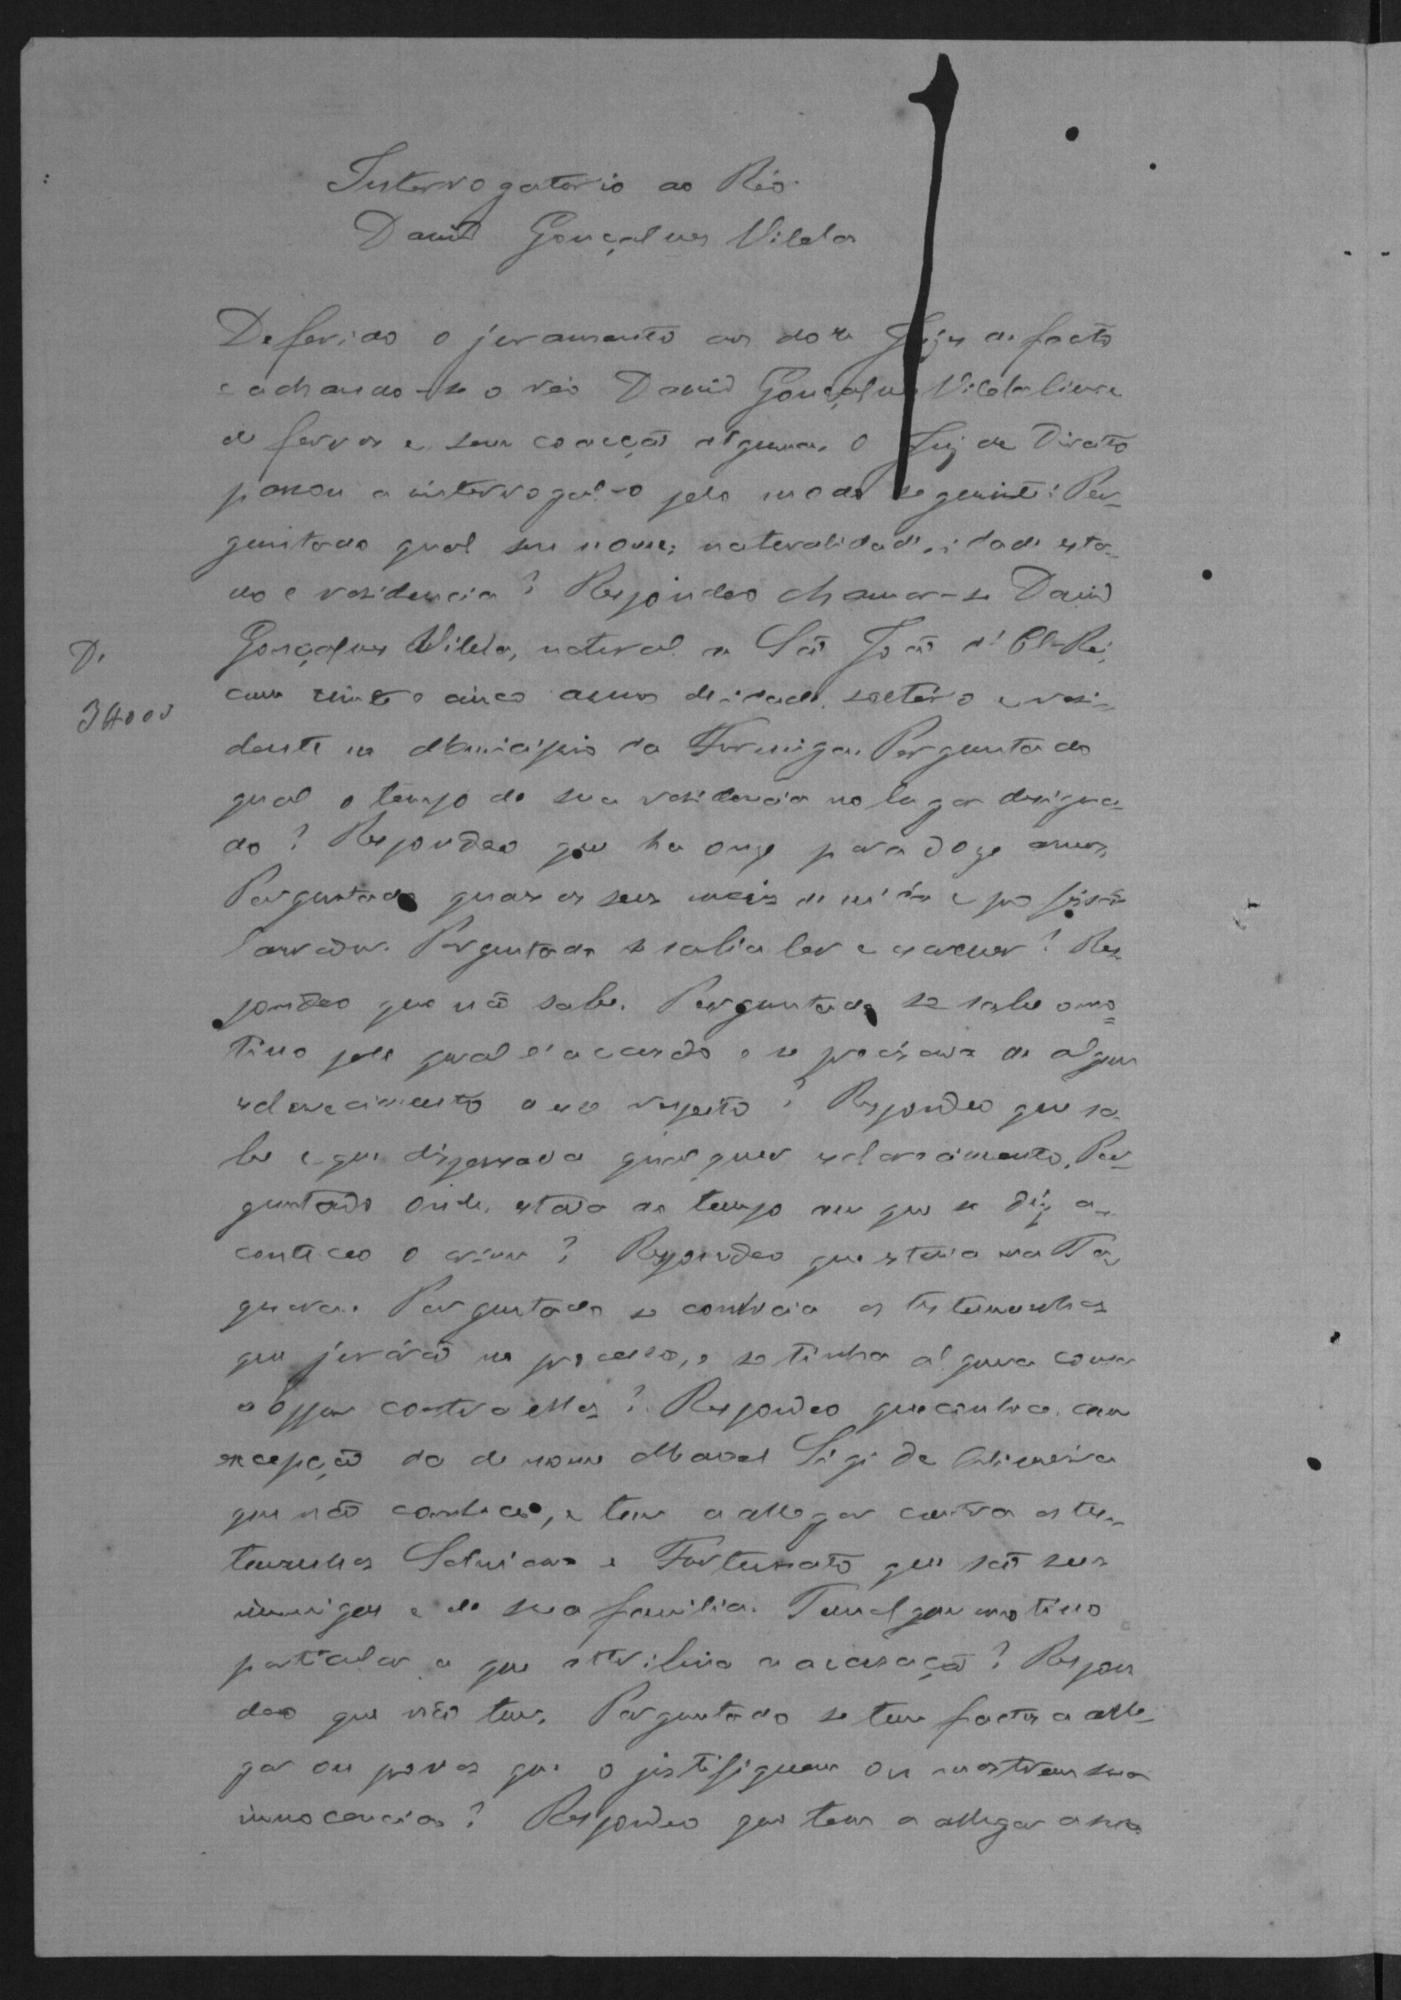 Interrogatorio ao Réo
David Gonçalves Vilela
Deferido o juramento aos doze Juizes de facto
e achando-se o réo David Gonçalves Vilela livre
de ferros e sem coacção alguma, o Juiz de Direito
passou a interrogal-o pelo modo seguinte: Per-
guntado qual seu nome, naturalidade, idade esta-
do e residencia? Respondeo chamar-se David
Gonçalves Vilela, natural de São João d'El-Rei,
com vinte e cinco annos de idade, solteiro e resi-
dente no Municipio da Formiga. Perguntado
qual o tempo de sua residencia no lugar designa-
do? Respondeo que ha onze para doze annos,
Perguntado quaes os seus meios de vida e profissão
lavrador. Perguntado se sabia ler e escrever? Res-
pondeo que não sabe. Perguntado se sabe o mo-
tivo pelo qual é accusado e se precisava de algum
esclarecimento a esse respeito? Respondeo que sa-
be e que dispensava qualquer esclarecimento. Per-
guntado onde estava ao tempo em que se diz a-
conteceo o crime? Respondeo que estava na Ta-
quara. Perguntado se conhecia as testemunhas
que jurárão no processo, e se tinha alguma cousa
a oppor contra ellas? Respondeo que conhece, com
excepção da de nome Manoel de Oliveira
que não conhece, e tem a allegar contra as tes-
temunhas Salviano e Fortunato que são seus
inimigos e de sua familia. Tem algum motivo
particular a que attribua a accusação? Respon
deo que não tem. Perguntado se tem factos a alle-
gar ou provas que o justifiquem ou mostrem sua
innocencia? Respondeo que tem a allegar a sua
D.
3#000